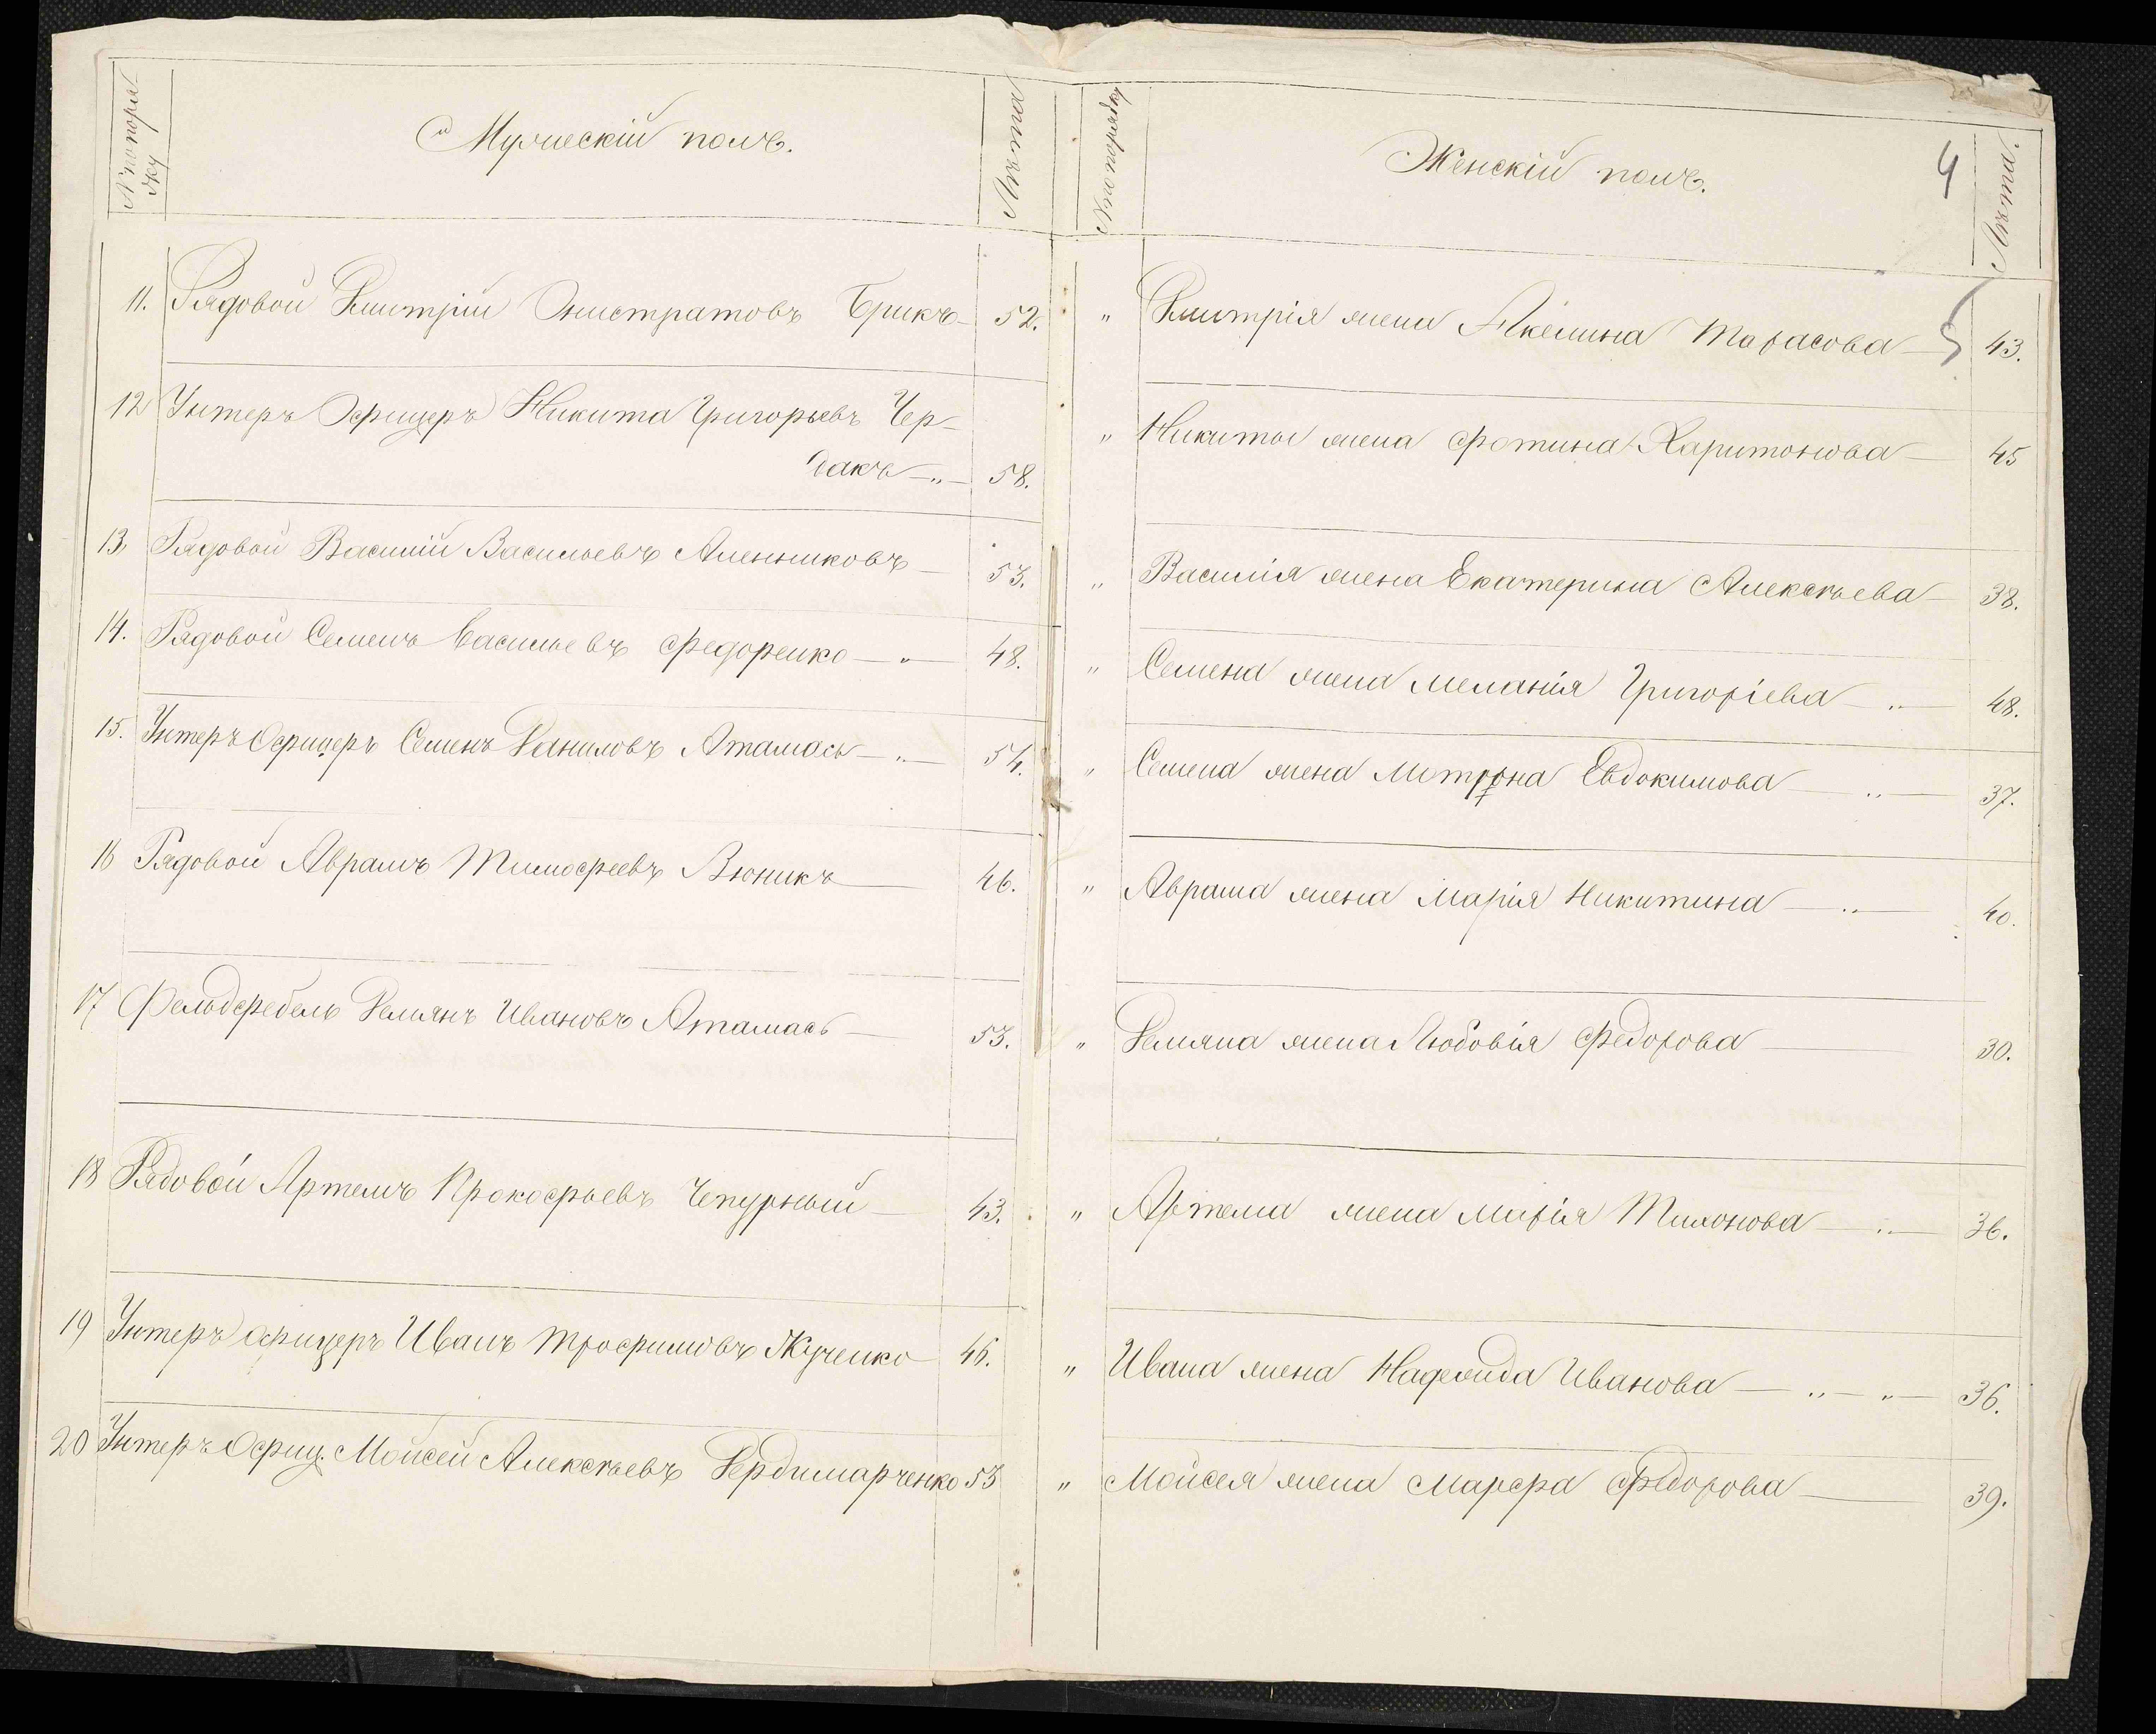 № по поряд-
ку
Мужескій полъ.
Лѣта
№ по порядку
Женскій полъ.
4
Лѣта.
11. Рядовой Дмитрій Онистратовъ Брикъ — 52.
" Дмитрія жена Акелина Тарасова — 43.
12 Унтеръ Офицеръ Никита Григорьевъ Чер-
дакъ — " — 58.
" Никиты жена Фотина Харитонова — 45
13. Рядовой Василій Васильевъ Аленниковъ — 53.
" Василія жена Екатерина Алексѣева — 38.
14. Рядовой Семенъ Васильевъ Федоренко — " — 48.
" Семена жена Меланія Григоріева — " — 48.
15. Унтеръ Офицеръ Семенъ Даниловъ Атамась — " — 54.
" Семена жена Мотрона Евдокимова — " — 37.
16 Рядовой Аврамъ Тимофеевъ Вюникъ — 46.
" Аврама жена Марія Никитина — " — 40.
17 Фельдфебель Демянъ Ивановъ Атамась — 53.
" Демяна жена Любовія Федорова — 30.
18 Рядовой Артемъ Прокофьевъ Чепурный — 43.
" Артема жена Марія Тихонова — " — 36.
19 Унтеръ Офицеръ Иванъ Трофимовъ Жученко 46.
" Ивана жена Надежда Иванова — " — " — 36.
20 Унтеръ Офиц. Мойсей Алексѣевъ Дердимарченко 53
" Мойсея жена Марфа Федорова — 39.